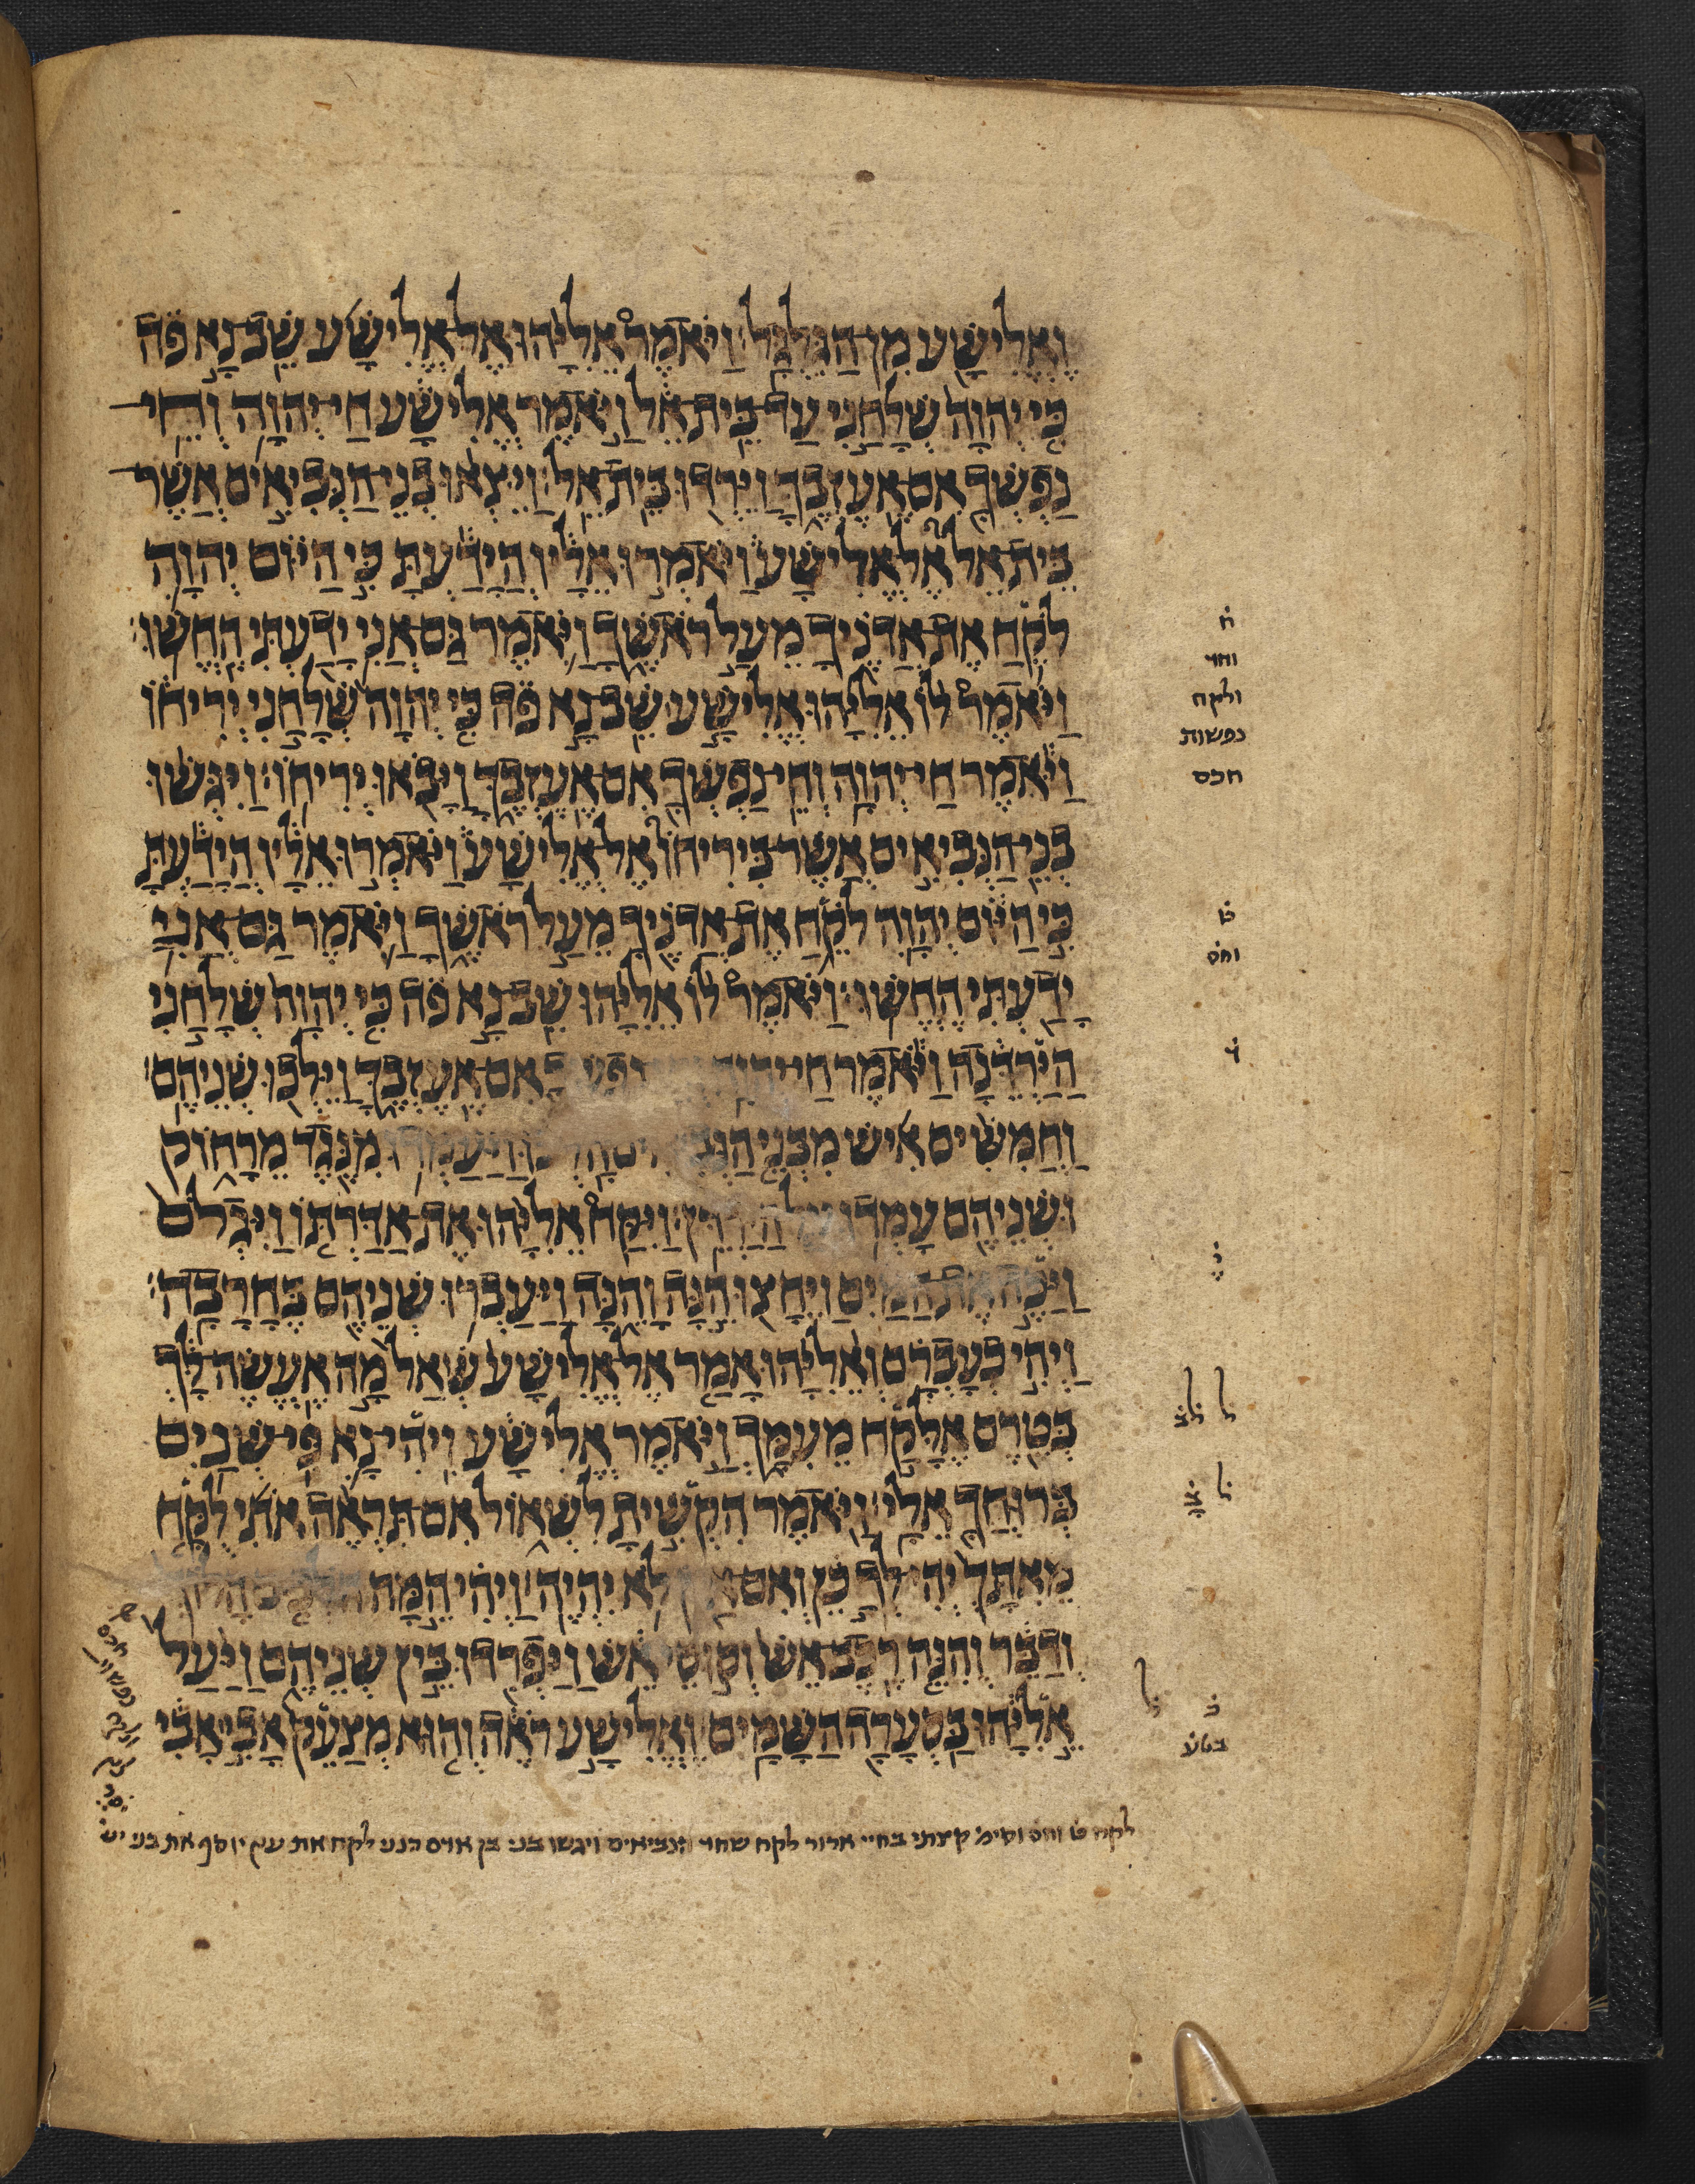 וֶאֱלִישָׁע מִן הַגִּלְגָּל׃ וַיֹּאמֶר אֵלִיָּהוּ אֶל אֱלִישָׁע שֵׁב נָא פֹה
כִּי יְהוָה שְׁלָחַנִי עַד בֵּית אֵל וַיֹּאמֶר אֱלִישָׁע חַי יְהוָה וְחֵי
נַפְשְׁךָ אִם אֶעֶזְבֶךָּ וַיֵּרְדוּ בֵּית אֵל׃ וַיֵּצְאוּ בְנֵי הַנְּבִיאִים אֲשֶׁר
בֵּית אֵל אֶל אֱלִישָׁע וַיֹּאמְרוּ אֵלָיו הֲיָדַעְתָּ כִּי הַיּוֹם יְהוָה
לֹקֵחַ אֶת אֲדֹנֶיךָ מֵעַל רֹאשֶׁךָ וַיֹּאמֶר גַּם אֲנִי יָדַעְתִּי הֶחֱשׁוּ׃
וַיֹּאמֶר לוֹ אֵלִיָּהוּ אֱלִישָׁע שֵׁב נָא פֹה כִּי יְהוָה שְׁלָחַנִי יְרִיחוֹ
וַיֹּאמֶר חַי יְהוָה וְחֵי נַפְשְׁךָ אִם אֶעֶזְבֶךָּ וַיָּבֹאוּ יְרִיחוֹ׃ וַיִּגְּשׁוּ
בְנֵי הַנְּבִיאִים אֲשֶׁר בִּירִיחוֹ אֶל אֱלִישָׁע וַיֹּאמְרוּ אֵלָיו הֲיָדַעְתָּ
כִּי הַיּוֹם יְהוָה לֹקֵחַ אֶת אֲדֹנֶיךָ מֵעַל רֹאשֶׁךָ וַיֹּאמֶר גַּם אֲנִי
יָדַעְתִּי הֶחֱשׁוּ׃ וַיֹּאמֶר לוֹ אֵלִיָּהוּ שֵׁב נָא פֹה כִּי יְהוָה שְׁלָחַנִי
הַיַּרְדֵּנָה וַיֹּאמֶר חַי אִם אֶעֶזְבֶךָּ וַיֵּלְכוּ שְׁנֵיהֶם׃
וַחֲמִשִּׁים אִישׁ מִבְּנֵי וַיַּעַמְדוּ מִנֶּגֶד מֵרָחוֹק
וּשְׁנֵיהֶם עָמְדוּ הַיַּרְדֵּן׃ וַיִּקַּח אֵלִיָּהוּ אֶת אַדַּרְתּוֹ וַיִּגְלֹם
וַיַּכֶּה אֶת הַמַּיִם וַיֵּחָצוּ הֵנָּה וָהֵנָּה וַיַּעַבְרוּ שְׁנֵיהֶם בֶּחָרָבָה׃
וַיְהִי כְעָבְרָם וְאֵלִיָּהוּ אָמַר אֶל אֱלִישָׁע שְׁאַל מָה אֶעֱשֶׂה לָּךְ
בְּטֶרֶם אֶלָּקַח מֵעִמָּךְ וַיֹּאמֶר אֱלִישָׁע וִיהִי נָא פִּי שְׁנַיִם
בְּרוּחֲךָ אֵלָי׃ וַיֹּאמֶר הִקְשִׁיתָ לִשְׁאוֹל אִם תִּרְאֶה אֹתִי לֻקָּח
מֵאִתָּךְ יְהִי לְךָ כֵן וְאִם לֹא יִהְיֶה׃ וַיְהִי הֵמָּה
וְדַבֵּר וְהִנֵּה רֶכֶב אֵשׁ וְסוּסֵי אֵשׁ וַיַּפְרִדוּ בֵּין שְׁנֵיהֶם וַיַּעַל
אֵלִיָּהוּ בַּסְעָרָה הַשָּׁמָיִם׃ וֶאֱלִישָׁע רֹאֶה וְהוּא מְצַעֵק אָבִי אָבִי
ח
וחי
ולקח
נפשות
חכם
ט
וחס
י
ל
ל
ל
ב
בטע
לקח ט וחס וסימ קצתי בחיי ארור לקח שחד הנביאים ויגשו בני לקח את עץ יוסף את בני יש